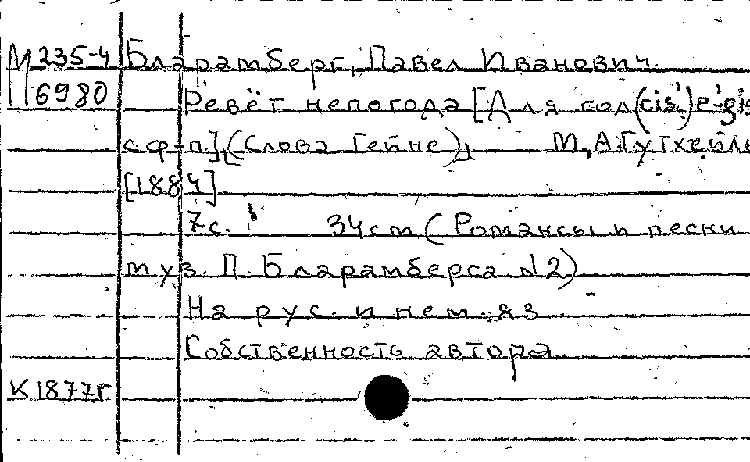 М 235-4 Бларамберг, Павел Иванович.
П 6980 Ревёт непогода [Для гол. (cis'-e²-gis
с ф-п.], (Слова Гейне), М., А. Гутхейль
[1884].
7 с. 34 см (Романсы и песни
муз. П. Бларамберга. N2)
На рус. и нем. яз.
Собственность автора
К 1877г